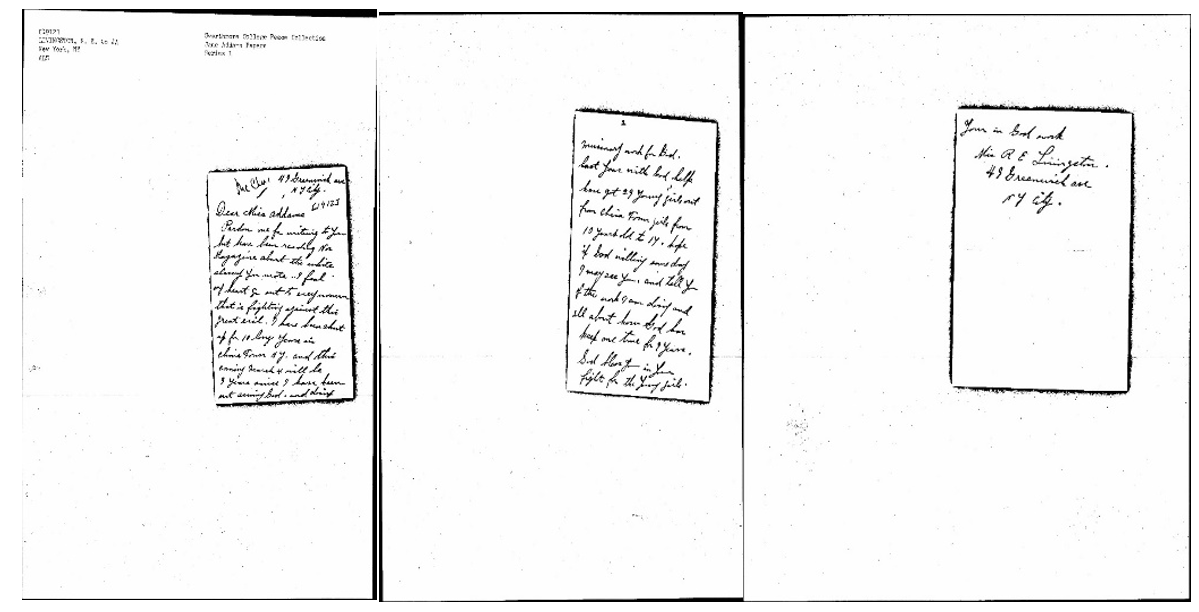 New York, NY
Swarthmore College Peace Collection
Jane Addams Papers
Series 1
49 Greenwich ave
N Y City.
Dear Miss addams
Pardon me for writing to You
but have been reading
Magazine about the white
slavery You wrote. I feel
my heart go out to every women
that is fighting against this
great evil. I have been shut
up for 10 long Years in
china Town N Y. and this
coming March 4 will be
9 Years since I have been
out serving God. and doing
2
missionary work for God.
last Year with God help
have got 29 Young girls out
from china Town girls from
10 Years old to 17. hope
if God willing some day
I may see You. and tell You
of the work I am doing and
all about how God has
keep me true for 9 Years.
God bless You in Your
fight for the Young girls.
Your in God work
Miss R E Livingston.
49 Greenwich ave
N Y City.